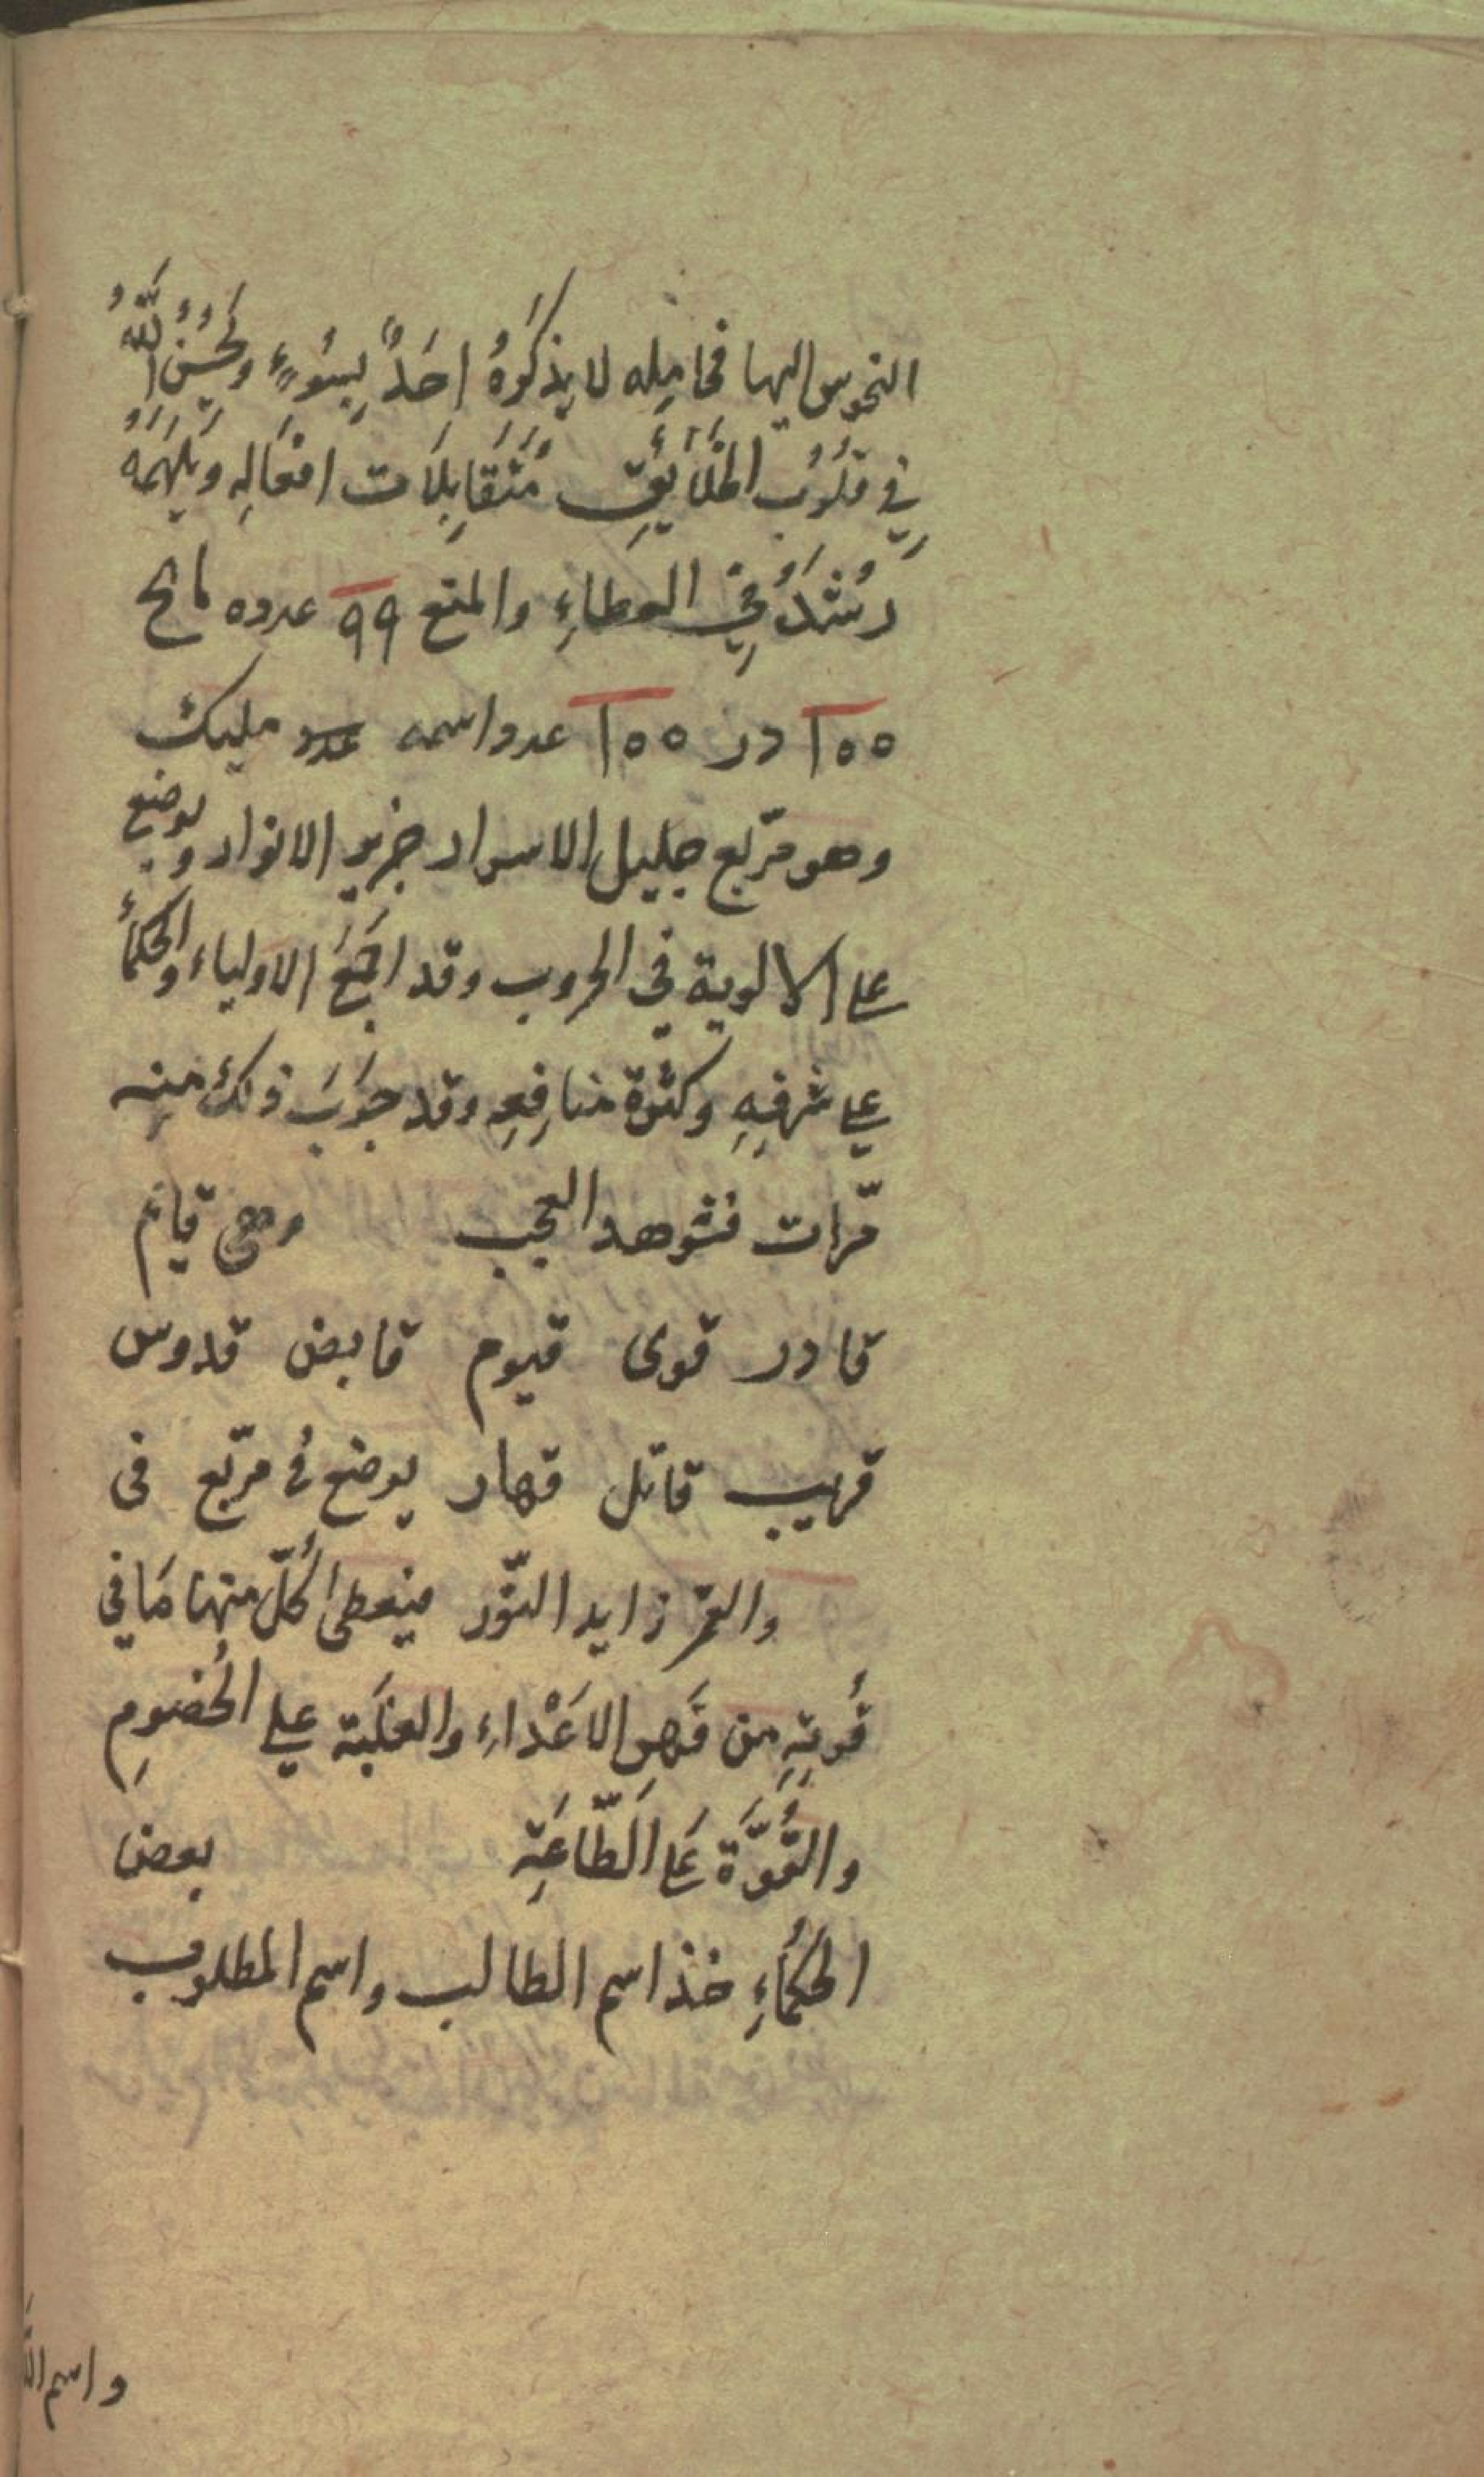 النحوس اليها فحامِله لا يذكرَهُ احَدٌ بِسُوءٍ ويُحَسِّنُ اللّٰهُ
فِي قلُوُبِ الخلَائِقِ مُتَقَابِلَات افعَالِهِ وَيُلهِمَهُ
رُشدَهُ فِي العطاءِ والمنع ٩٩ عدده مانح
١٥٥ در ١٥٥ عدد اسمه عدد مليك
وهو مرّبع جليل الاسرار غزير الانوار ويوضع
على الالوية في الحروب وقد اجمَعَ الاولياء والحكمآء
على شرفِهِ وكثرة منافِعِه وقد جرّبَ ذلك منِه
مّرات فشوهد العجب وهى قايم
قادر قوى قيوم قابض قدوس
قريب قاتل قهار يوضع في مرّبع في
والقمر زايد النّور فيعطى كُلّ منها مَا في
قُوتِهِ من قَهرِ الاعْداءِ والغلَبَة على الخُصومِ
والقُوَّة عَلى الَطّاعَةِ بعض
الحُكَمَاءِ خذ اسم الطالب واسم المطلوب
واسم